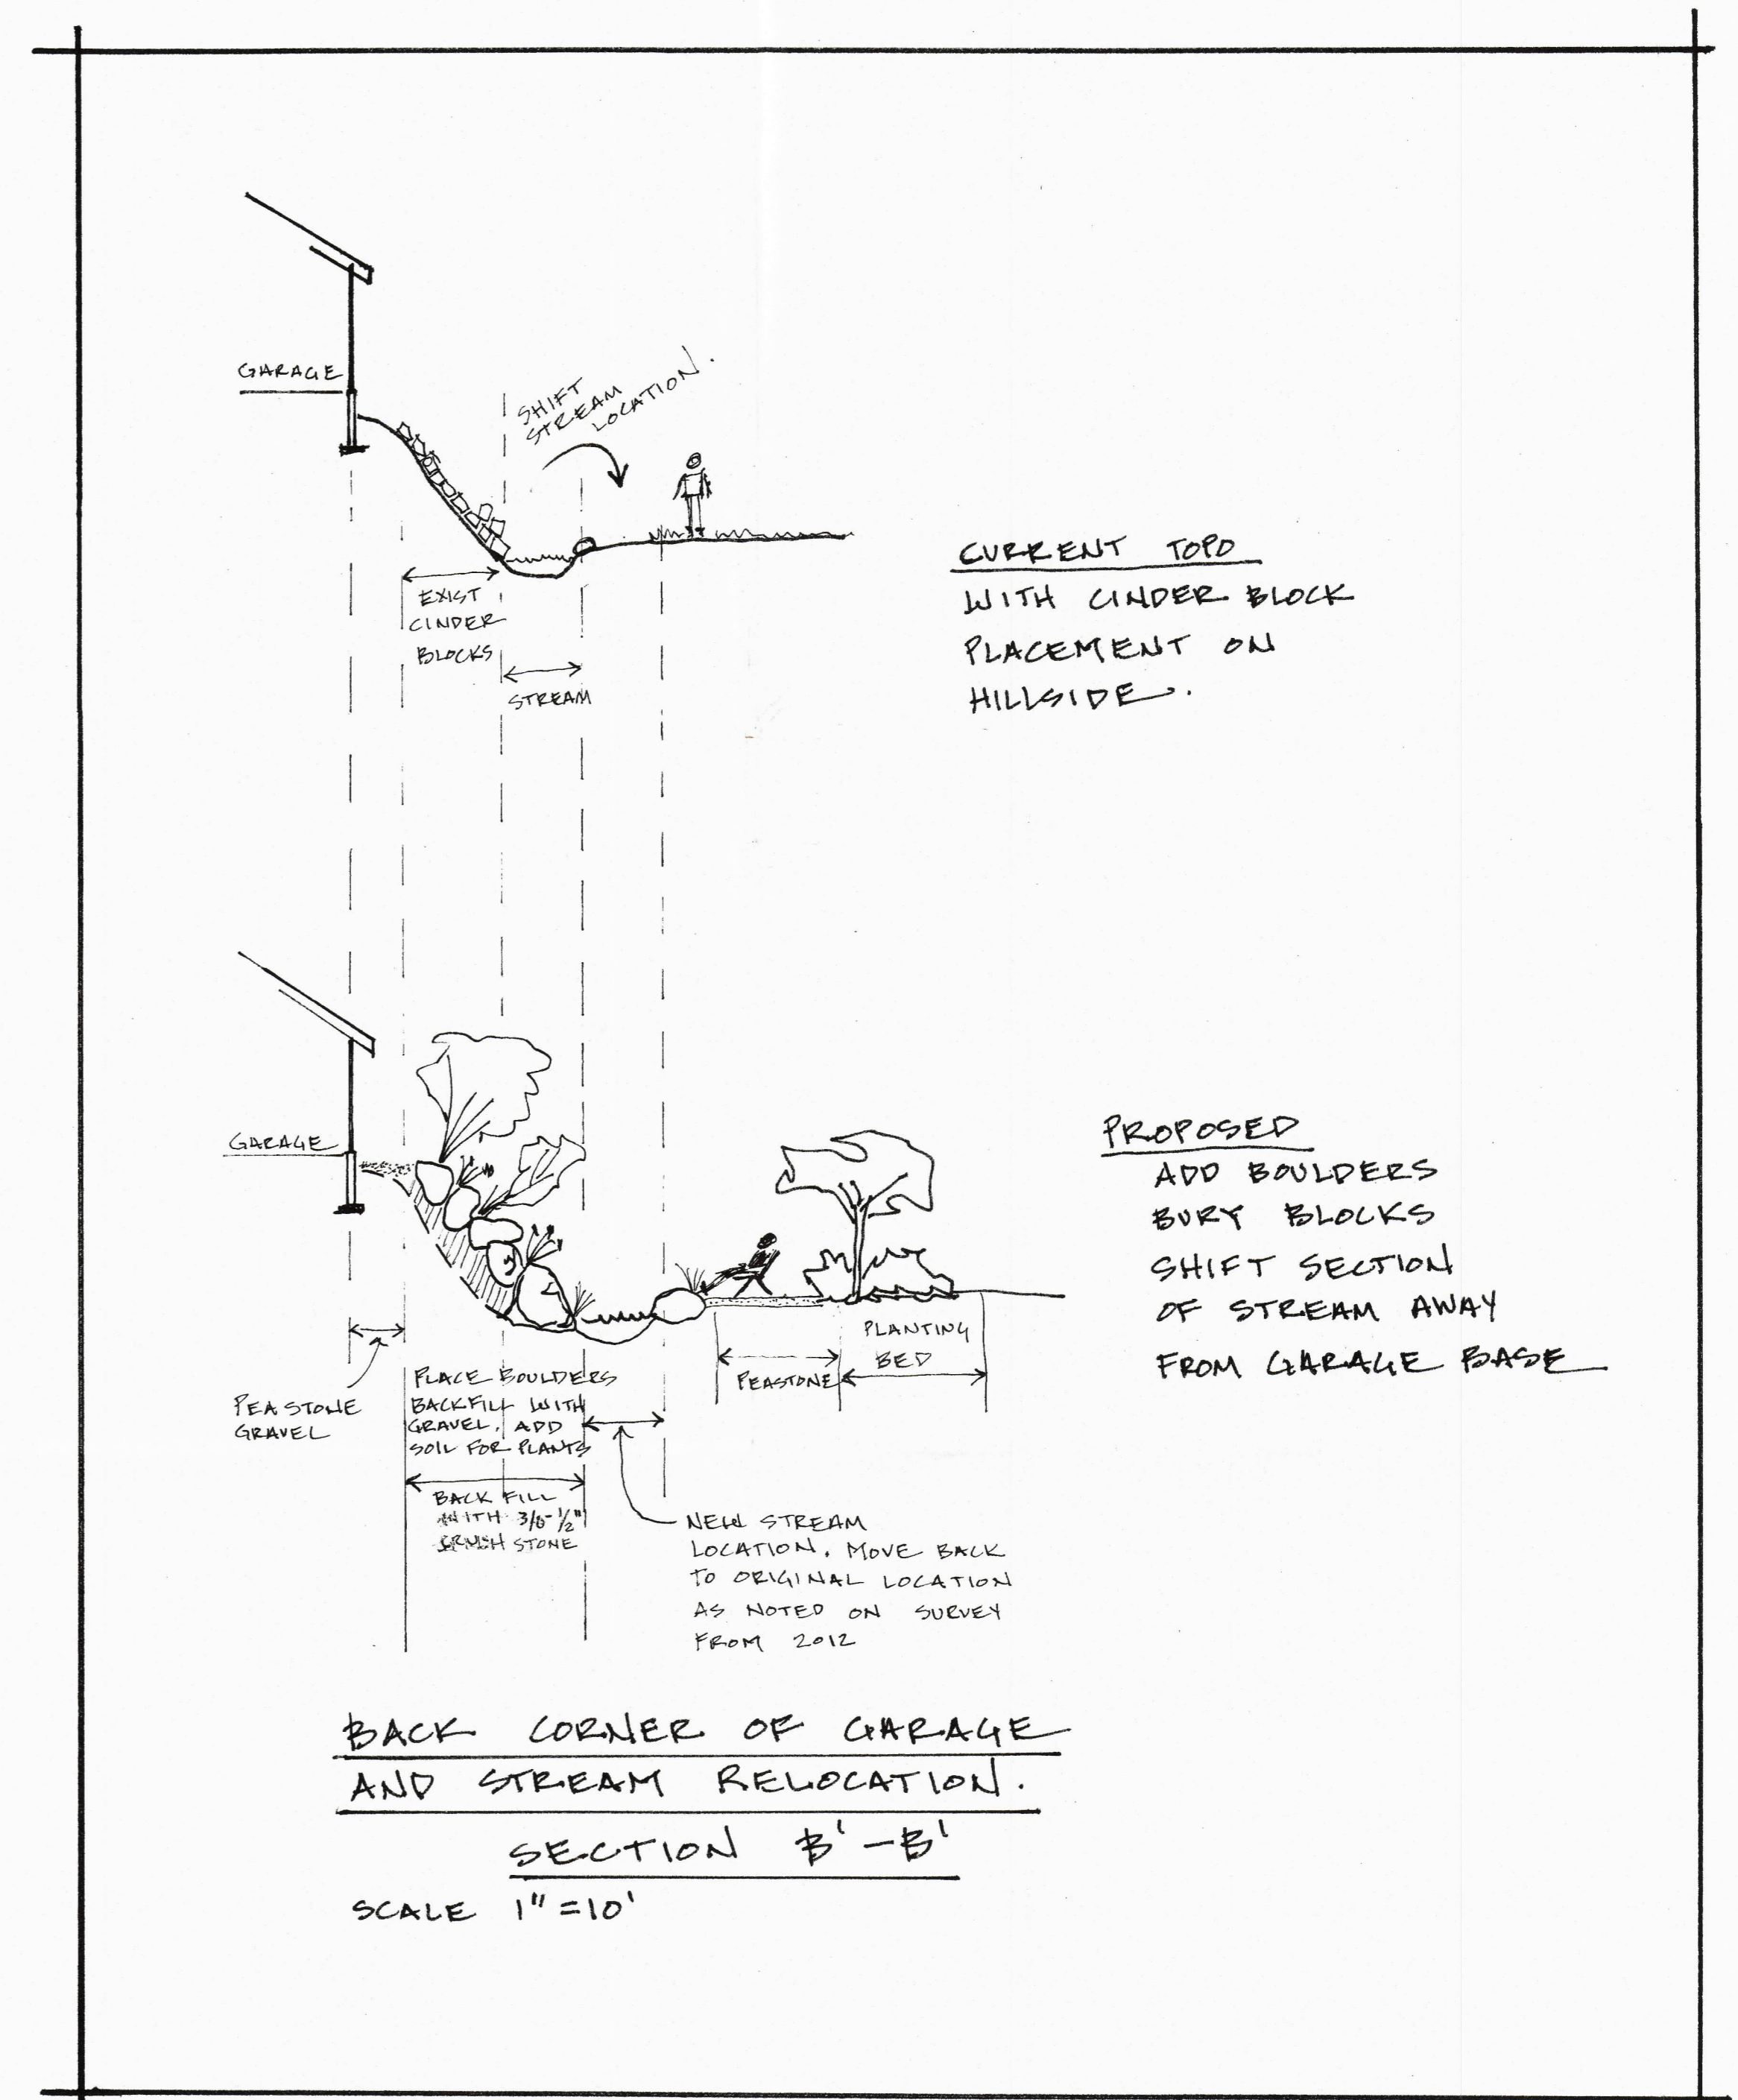 GARAGE
SHIFT
STREAM
LOCATION.
EXIST
CINDER
BLOCKS
STREAM
CURRENT TOPO
WITH CINDER BLOCK
PLACEMENT ON
HILLSIDE.
GARAGE
PEASTONE
GRAVEL
PLACE BOULDERS
BACKFILL WITH
GRAVEL, ADD
SOIL FOR PLANTS
BACK FILL
WITH 3/8-1/2"
CRUSH STONE
PEASTONE
PLANTING
BED
NEW STREAM
LOCATION. MOVE BACK
TO ORIGINAL LOCATION
AS NOTED ON SURVEY
FROM 2012
PROPOSED
ADD BOULDERS
BURY BLOCKS
SHIFT SECTION
OF STREAM AWAY
FROM GARAGE BASE
BACK CORNER OF GARAGE
AND STREAM RELOCATION.
SECTION B'-B'
SCALE 1"=10'